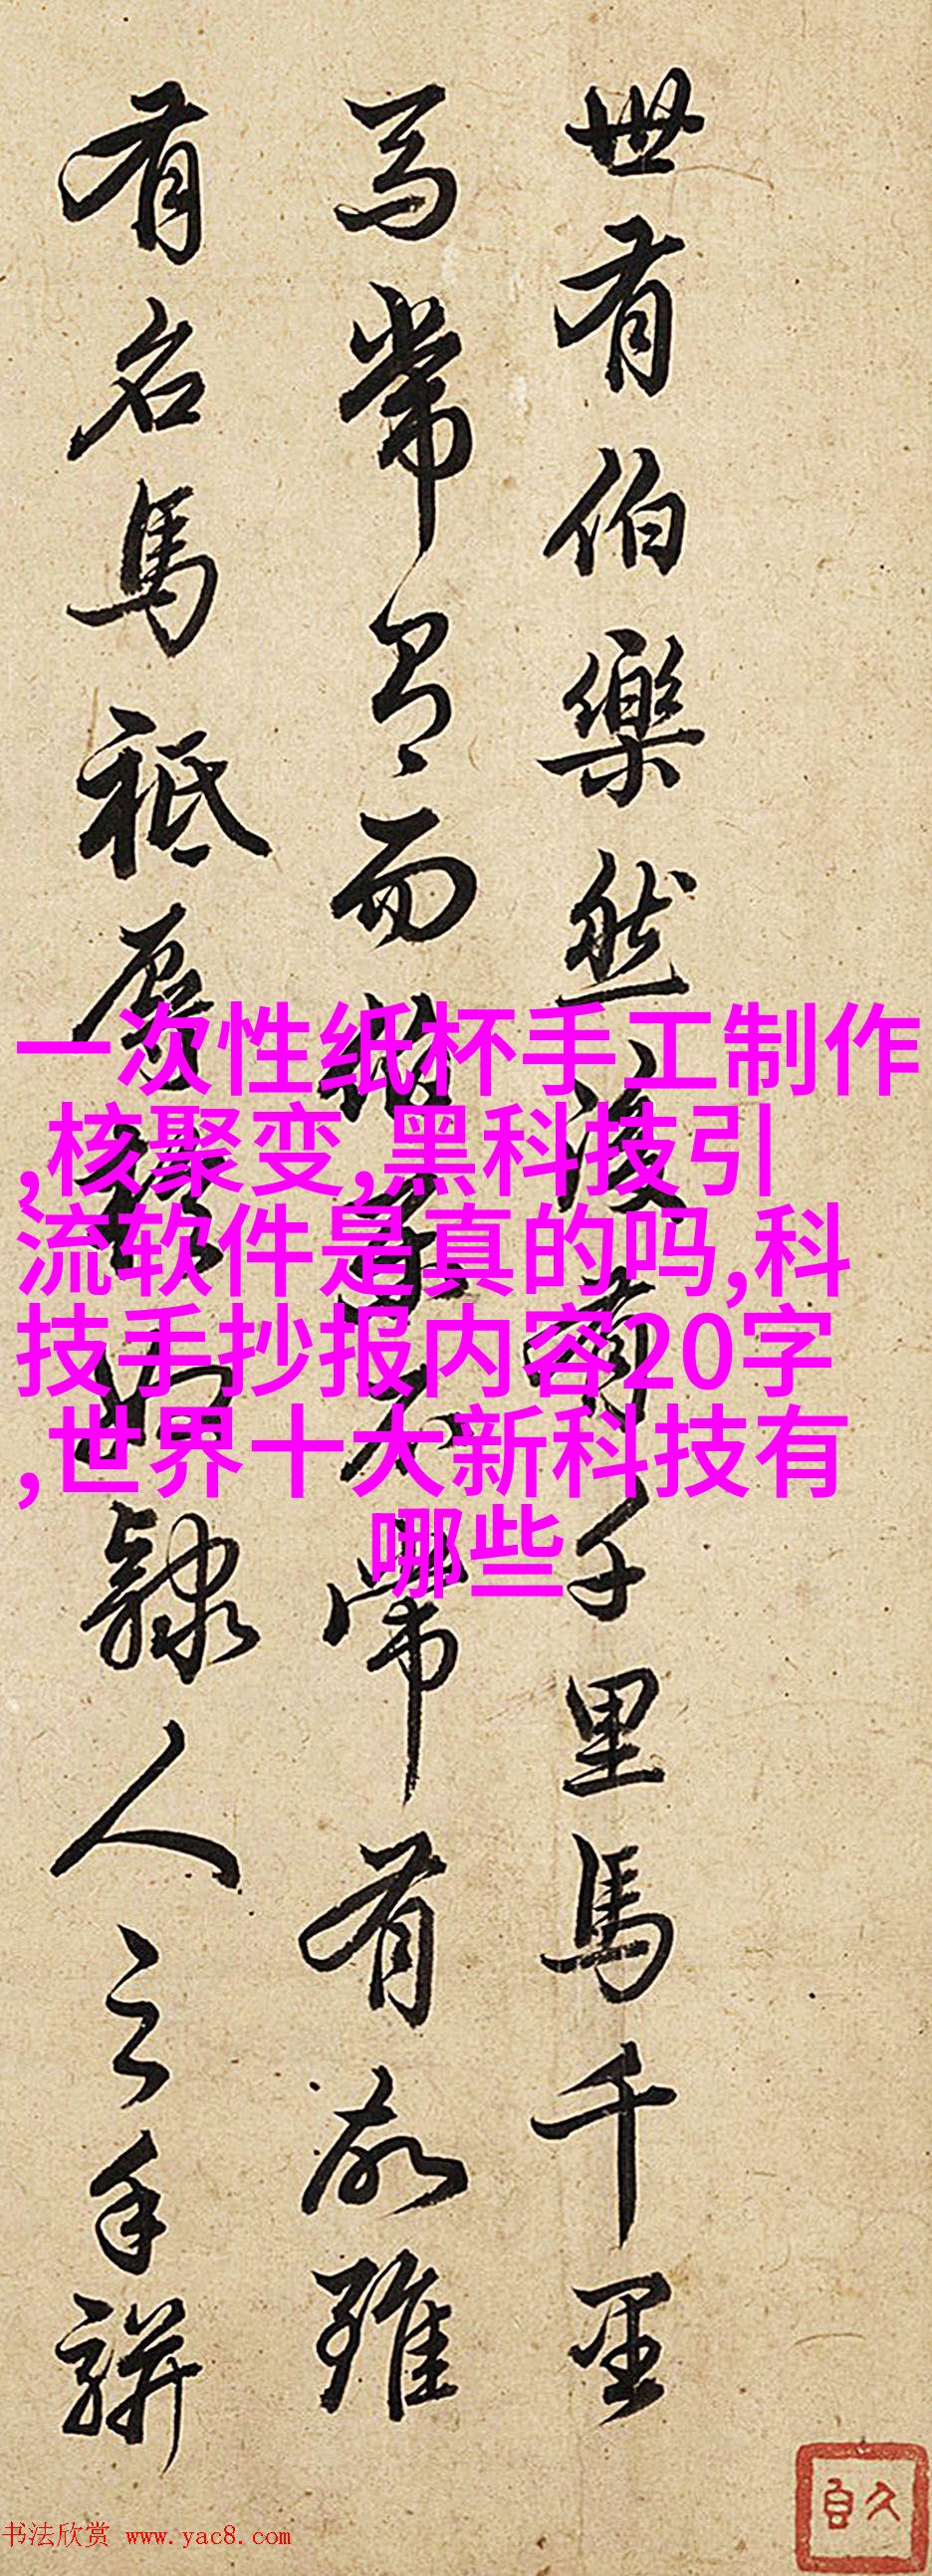 世有伯樂然後有千里馬千里
马常有而伯樂不常有故雖
有名馬祗辱於奴隸人之手駢
一次性纸杯手工制作
,核聚变,黑科技引
流软件是真的吗,科
技手抄报内容20字
,世界十大新科技有
哪些
书法欣赏 www.yac8.com